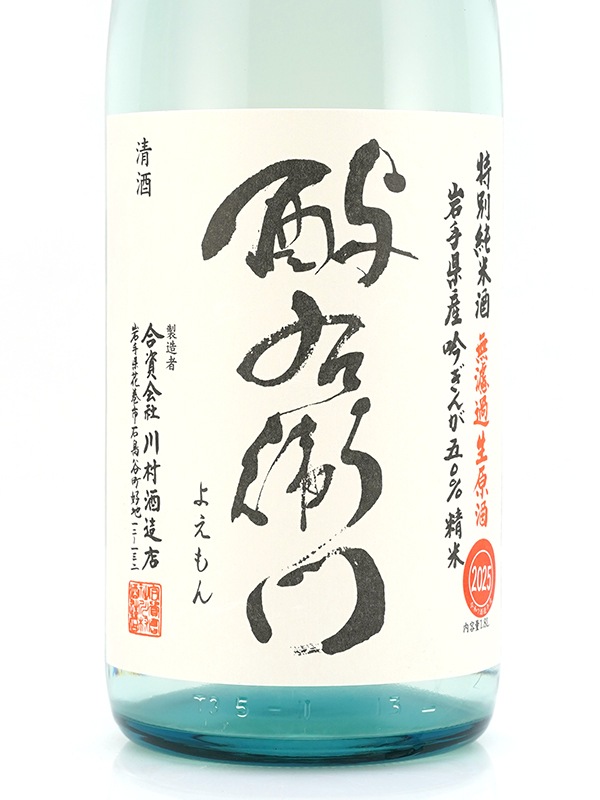 特別純米酒 無濾過生原酒
岩手県産吟ぎんが五〇%精米
2025
内容量1.8L
酔右衛門
よえもん
清酒
製造者
合資会社川村酒造店
岩手県花巻市石鳥谷町好地一二-一三二